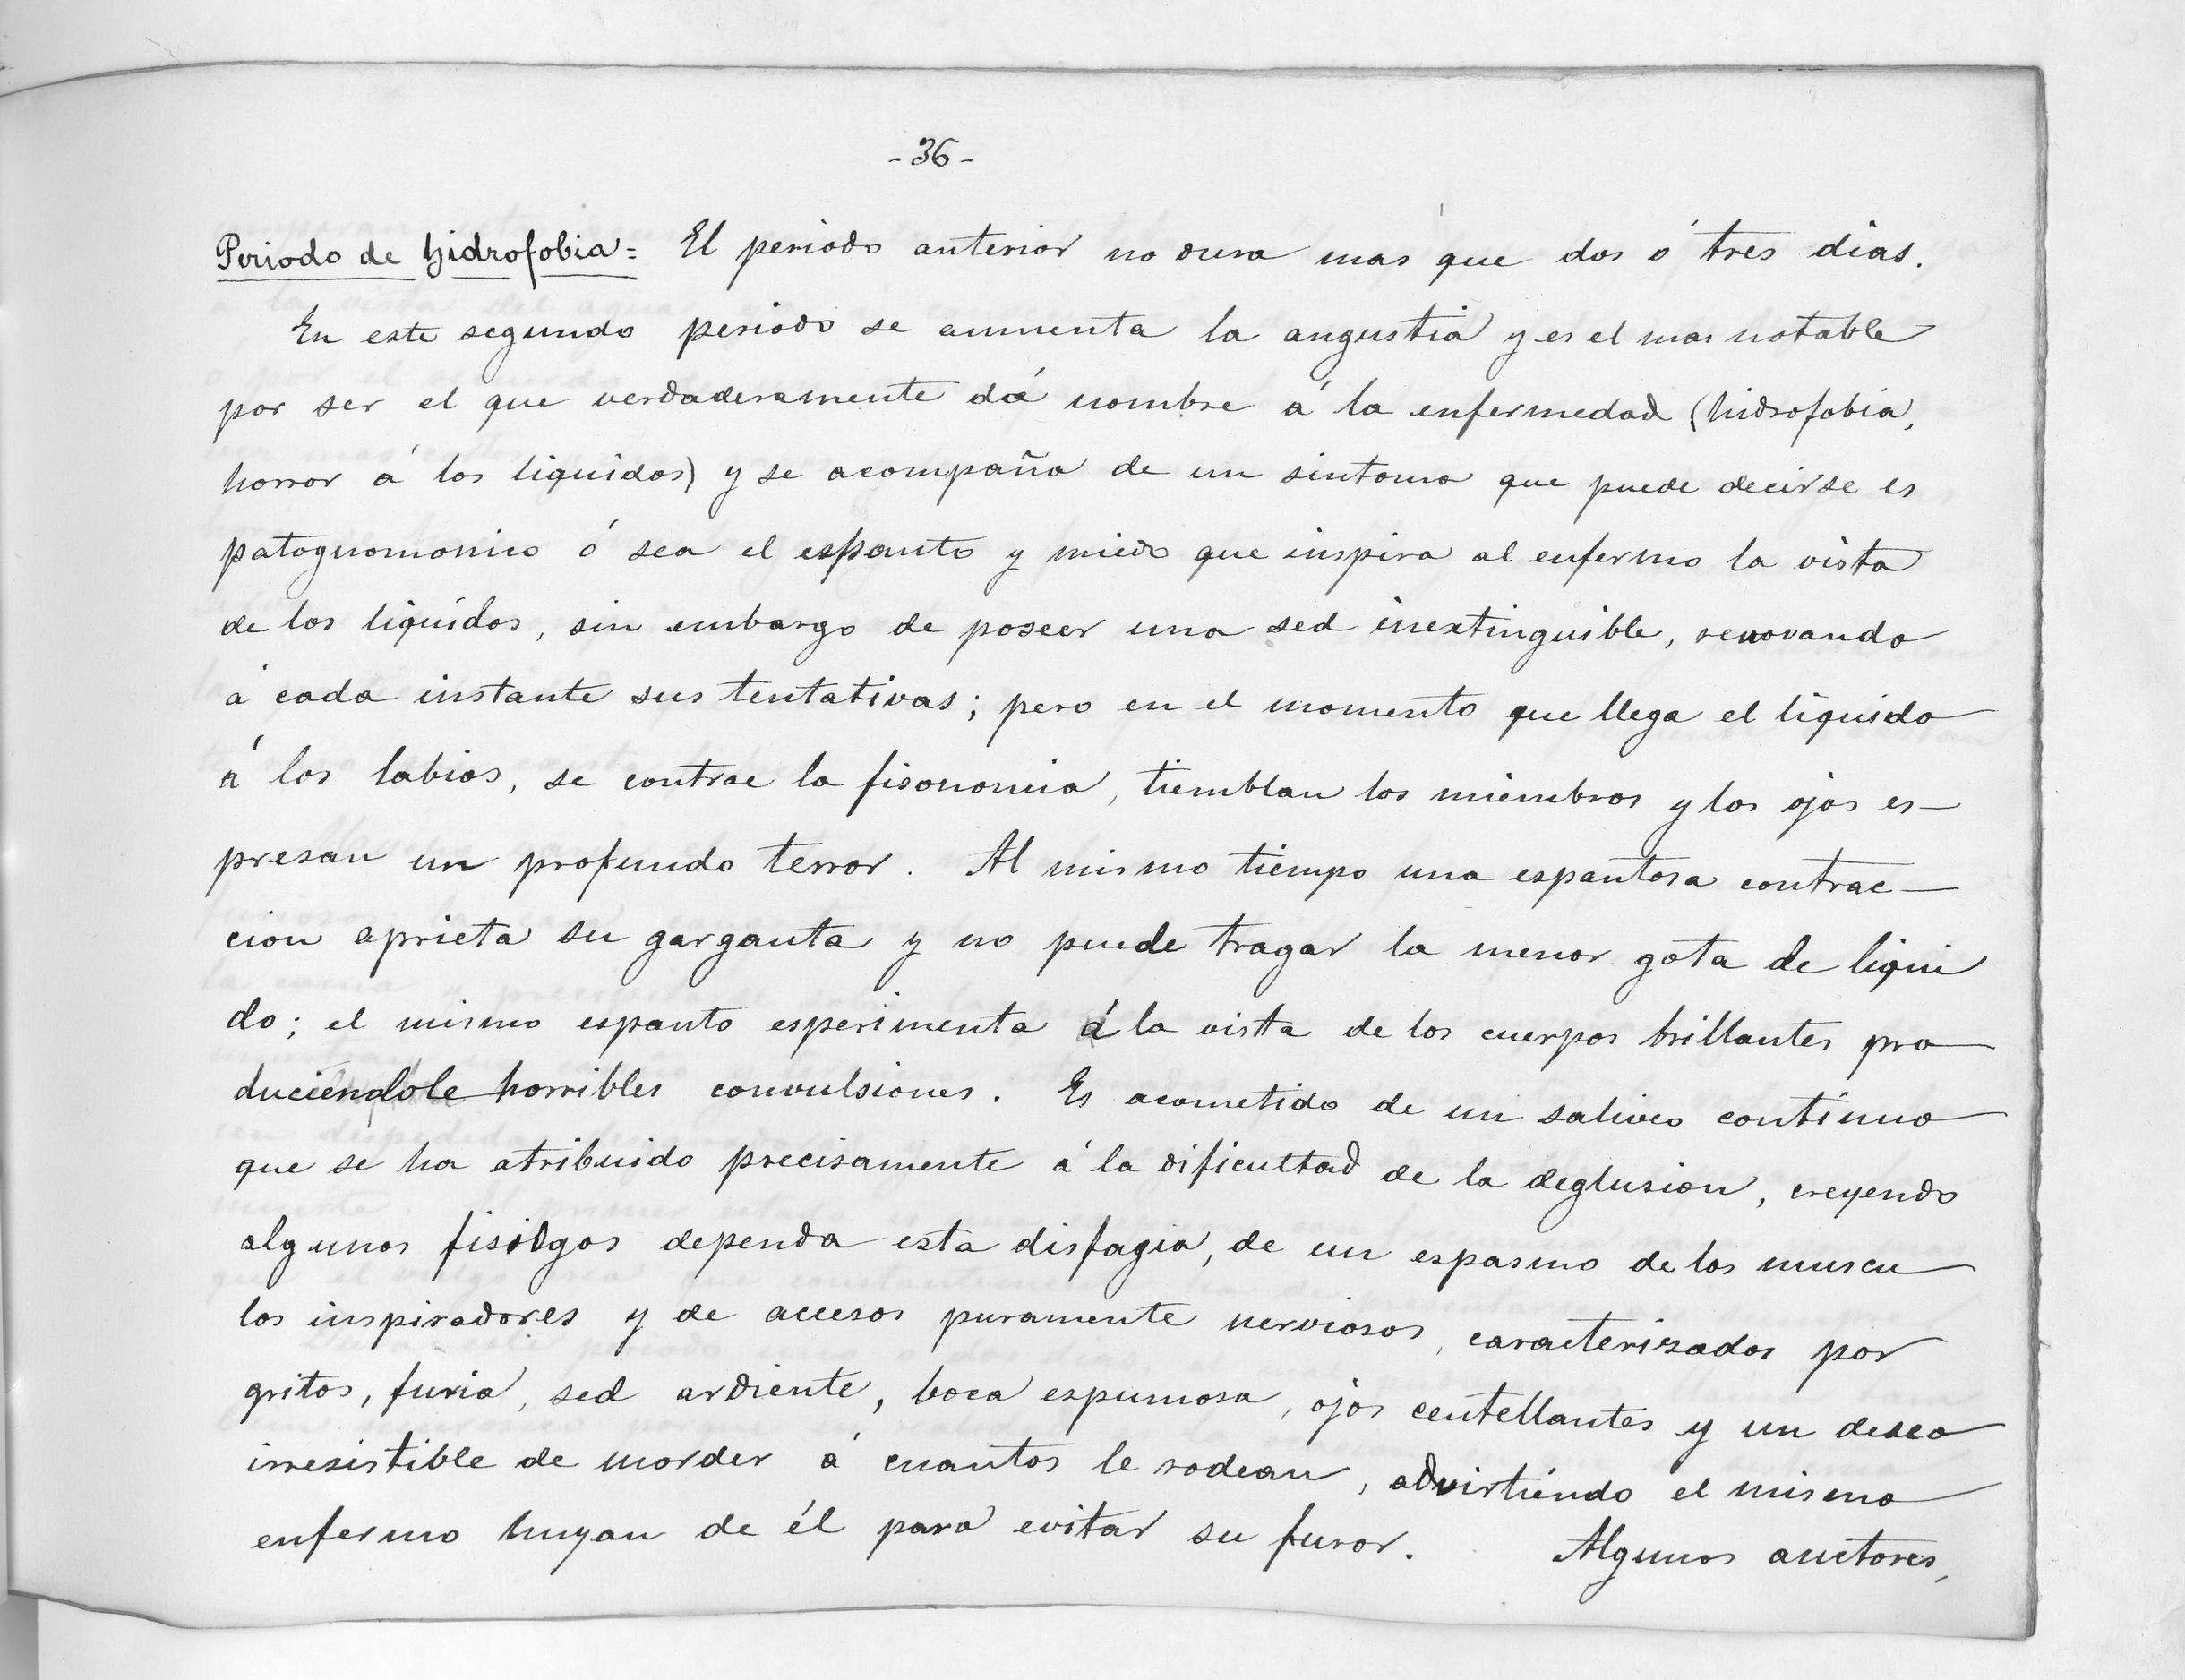 -36-
Periodo de hidrofobia= El periodo anterior no dura mas que dos ó tres dias.
En este segundo periodo se aumenta la angustia y es el mas notable
por ser el que verdaderamente dá nombre á la enfermedad (hidrofobia,
horror á los liquidos) y se acompaña de un sintoma que puede decirse es
patognomonico ó sea el espanto y miedo que inspira al enfermo la vista
de los liquidos, sin embargo de poseer una sed inextinguible, renovando
á cada instante sus tentativas; pero en el momento que llega el liquido
á los labios, se contrae la fisonomia, tiemblan los miembros y los ojos es-
presan un profundo terror. Al mismo tiempo una espantosa contrac-
cion aprieta su garganta y no puede tragar la menor gota de liqui
do; el mismo espanto esperimenta á la vista de los cuerpos brillantes pro
duciendole horribles convulsiones. Es acometido de un saliveo continuo
que se ha atribuido precisamente á la dificultad de la deglusion, creyendo
algunos fisiólgos dependa esta disfagia, de un espasmo de los muscu
los inspiradores y de accesos puramente nerviosos, caracterizados por
gritos, furia, sed ardiente, boca espumosa, ojos centellantes y un deseo
irresistible de morder á cuantos le rodean, advirtiendo el mismo
enfermo huyan de él para evitar su furor. Algunos auctores,